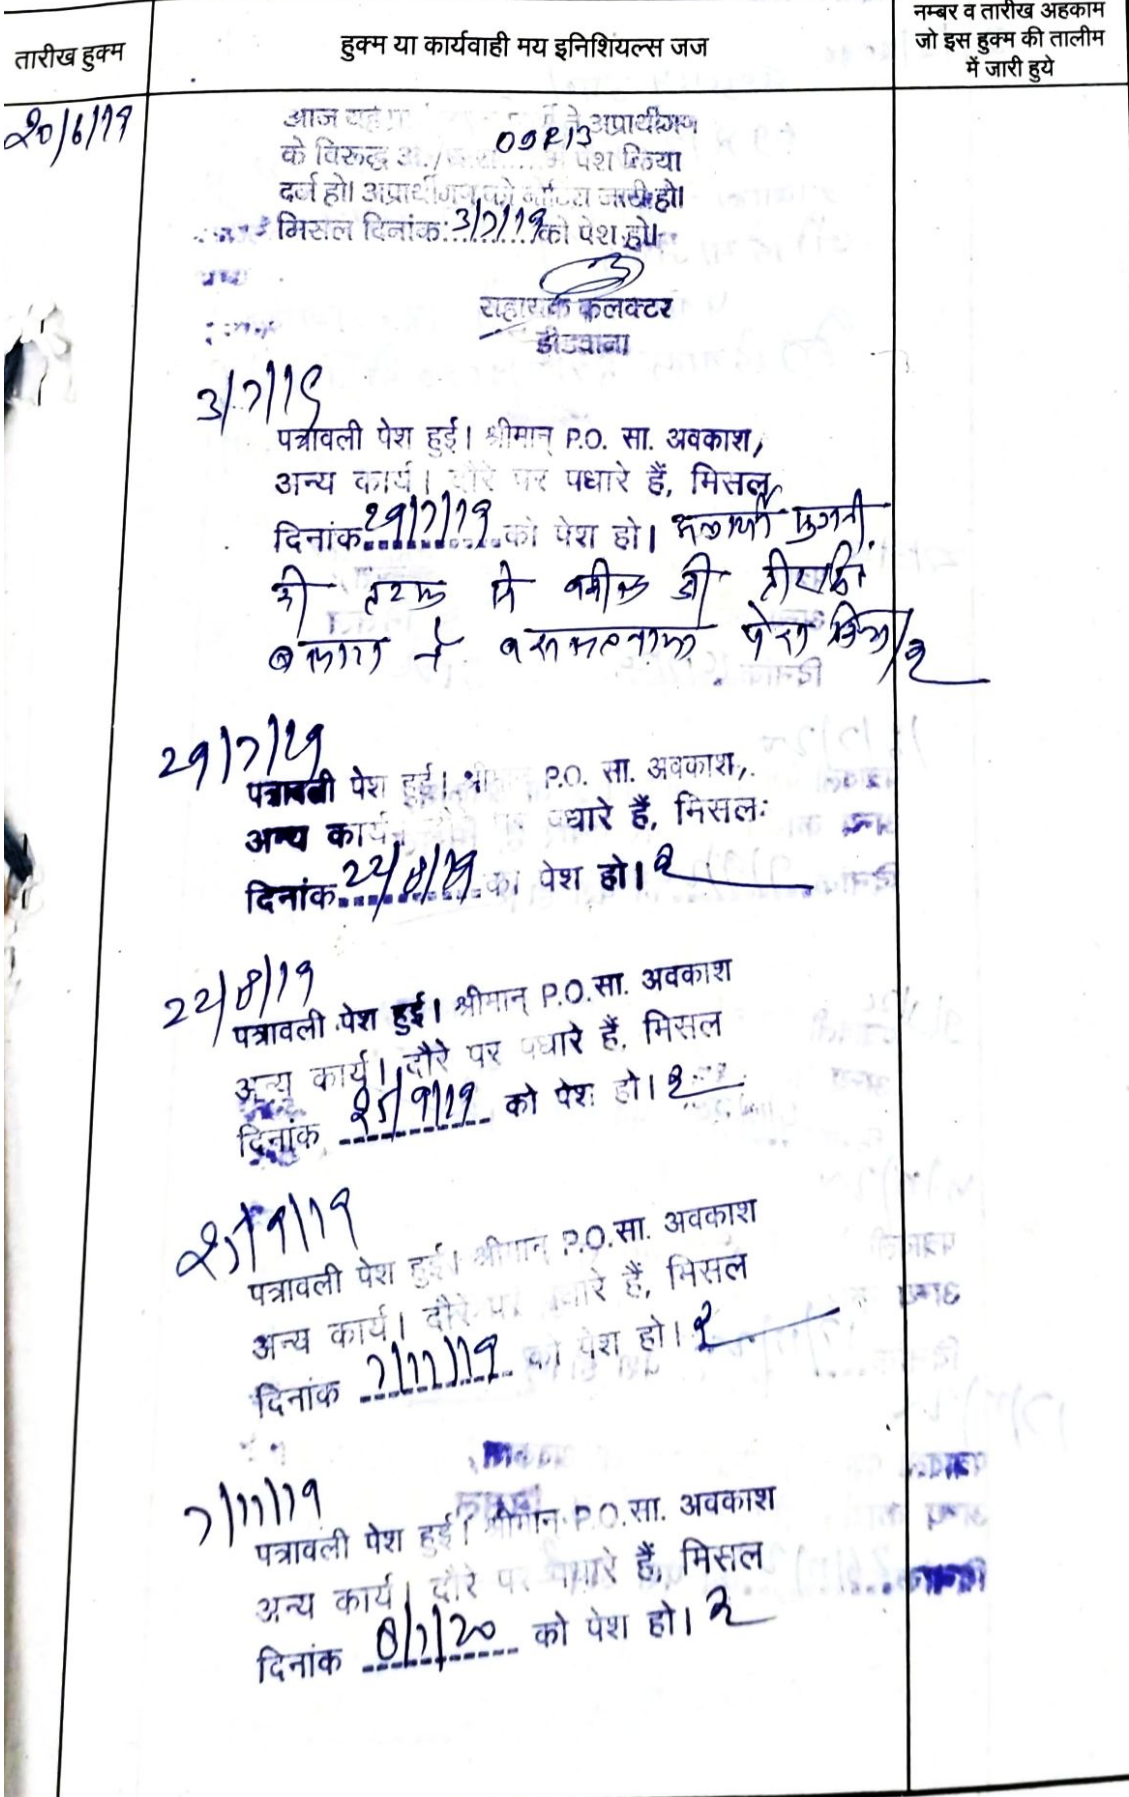 तारीख हुक्म
हुक्म या कार्यवाही मय इनिशियल्स जज
नम्बर व तारीख अहकाम
जो इस हुक्म की तालीम
में जारी हुये
20/6/19
आज यह अप्रार्थीगण
के विरूद्ध 09R13 पेश किया
दर्ज हो। अप्रार्थीगण को नोटिस जारी हो।
मिसल दिनांक 3/7/19 को पेश हो।
सहायक कलक्टर
डीडवाना
3/7/19
पत्रावली पेश हुई। श्रीमान् P.O. सा. अवकाश,
अन्य कार्य। दौरे पर पधारे हैं, मिसल
दिनांक 29/7/19 को पेश हो।
की तरफ से वकील श्री
ने वकालतनामा पेश किया
29/7/19
पत्रावली पेश हुई। श्रीमान् P.O. सा. अवकाश,
अन्य कार्य। दौरे पर पधारे हैं, मिसल
दिनांक 22/8/19 को पेश हो।
22/8/19
पत्रावली पेश हुई। श्रीमान् P.O.सा. अवकाश
अन्य कार्य। दौरे पर पधारे हैं, मिसल
दिनांक 25/9/19 को पेश हो।
25/9/19
पत्रावली पेश हुई। श्रीमान् P.O.सा. अवकाश
अन्य कार्य। दौरे पर पधारे हैं, मिसल
दिनांक 7/11/19 को पेश हो।
7/11/19
पत्रावली पेश हुई। श्रीमान् P.O.सा. अवकाश
अन्य कार्य। दौरे पर पधारे हैं, मिसल
दिनांक 8/1/20 को पेश हो।